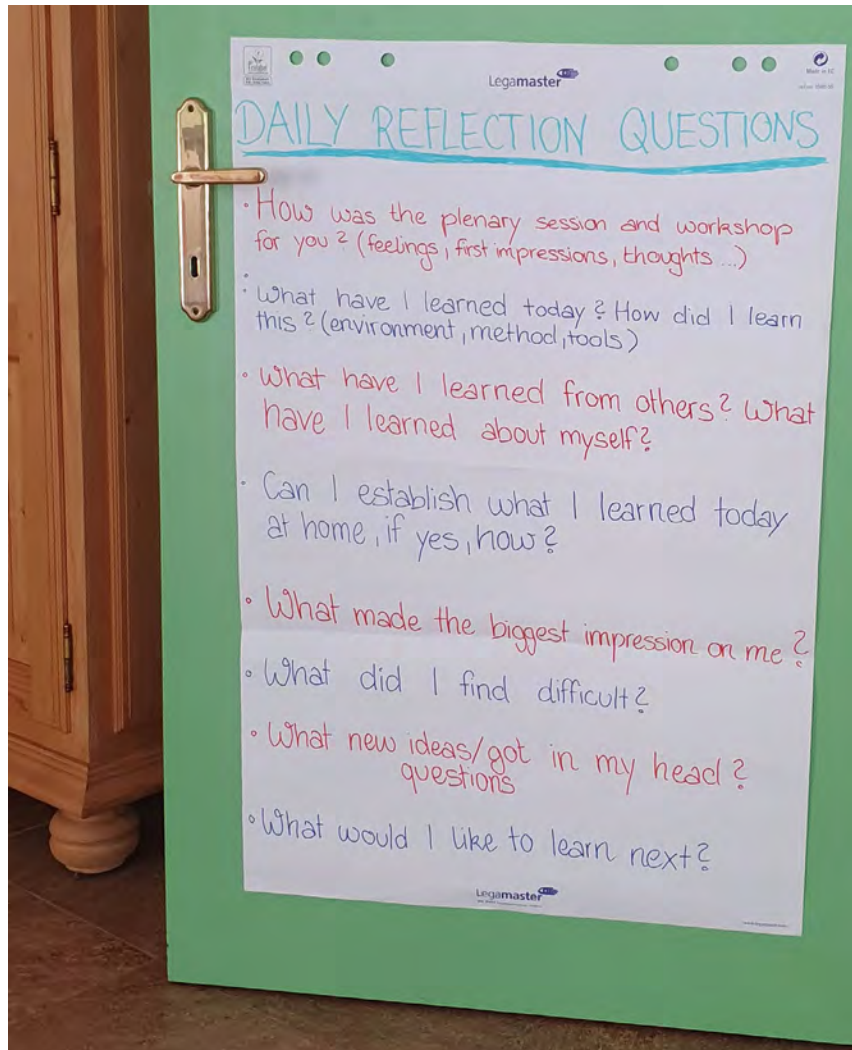 Legamaster
Made in EC
DAILY REFLECTION QUESTIONS
• How was the plenary session and workshop
for you? (feelings, first impressions, thoughts ...)
• What have I learned today? How did I learn
this? (environment, method, tools)
• What have I learned from others? What
have I learned about myself?
• Can I establish what I learned today
at home, if yes, how?
• What made the biggest impression on me?
• What did I find difficult?
• What new ideas/got in my head?
questions
• What would I like to learn next?
Legamaster